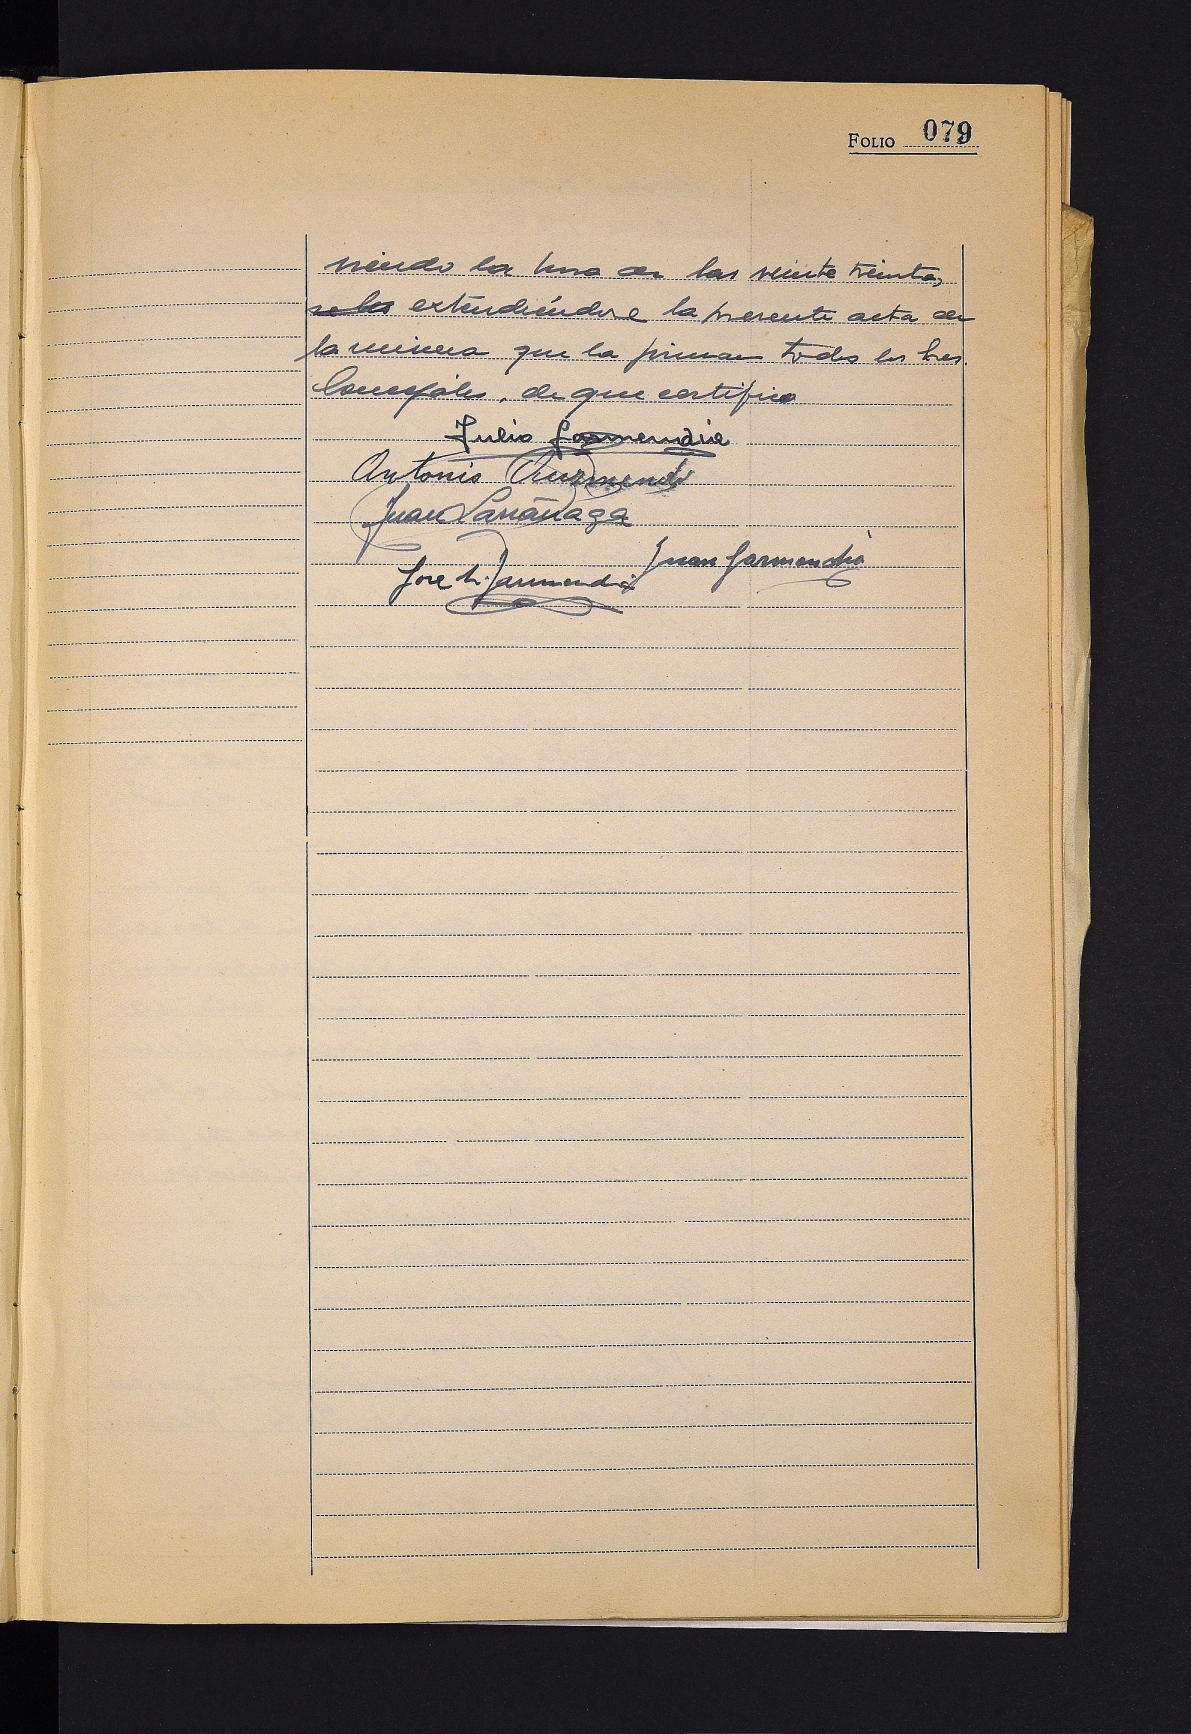 FOLIO 079
siendo la hora de las veinte treinta,
extendiéndose la presente acta de
la misma que la firman todos los Sres.
Concejales, de que certifico
Julio Garmendia
Antonio Auzmendi
Juan Larrañaga
Juan Garmendia
Jose M. Garmendia